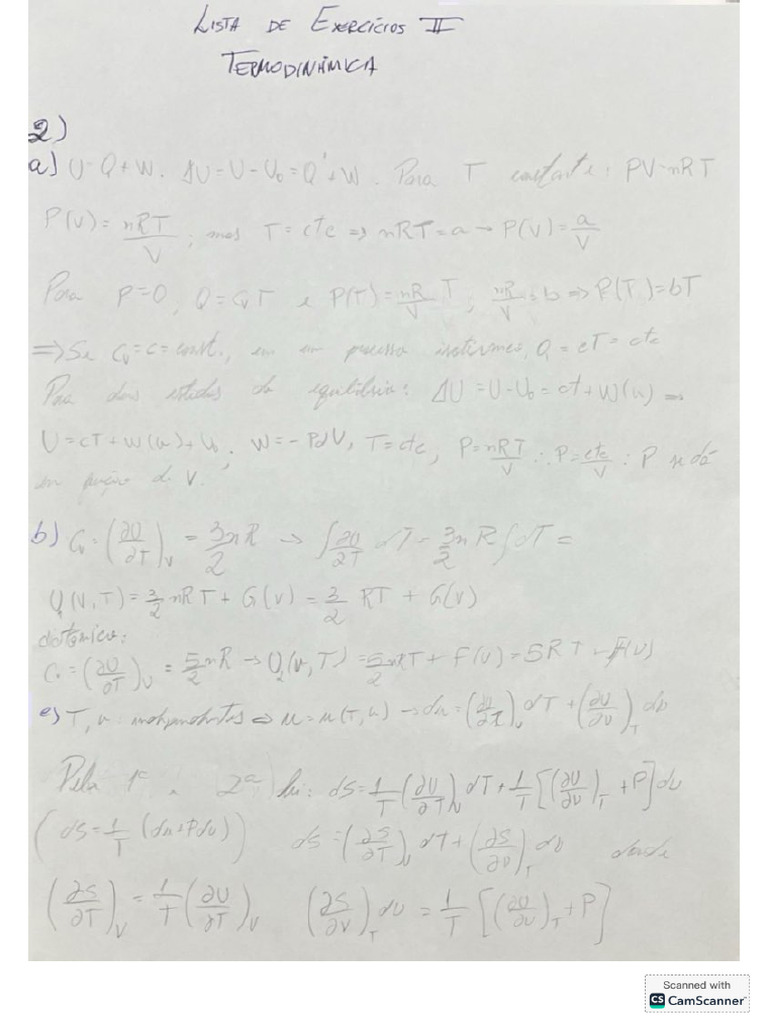 LISTA DE EXERCÍCIOS II
TERMODINÂMICA
2)
a) U = Q + W. ΔU = U - U₀ = Q + W. Para T constante: PV = nRT
P(V) = nRT/V; mas T = cte ⇒ nRT = a → P(V) = a/V
Para P=0, Q = CᵥT e P(T) = nR/V T; nR/V = b ⇒ P(T) = bT
⇒ Se Cᵥ = c = const., em um processo isotérmico, Q = cT = cte
Para dois estados de equilíbrio: ΔU = U - U₀ = ct + W(u) ⇒
U = cT + W(u) + U₀; W = -PdV, T = cte, P = nRT/V ∴ P = cte/V : P se dá
em função de V.
b) Cᵥ = (∂U/∂T)ᵥ = 3nR/2 → ∫ ∂U/∂T dT = 3/2 nR ∫dT =
U₁(V,T) = 3/2 nRT + G(V) = 3/2 RT + G(V)
diatômico:
Cᵥ = (∂U/∂T)ᵥ = 5/2 nR → U₂(V,T) = 5/2 nRT + F(V) = 5RT + F(V)
T, v independentes ⇒ u = u(T,v) → du = (∂u/∂T)ᵥ dT + (∂u/∂v)_T dv
Pela 1ª e 2ª lei: ds = 1/T (∂U/∂T)ᵥ dT + 1/T [(∂U/∂v)_T + P] dv
(ds = 1/T (du + Pdv)) ds = (∂S/∂T)ᵥ dT + (∂S/∂V)_T dv donde
(∂S/∂T)ᵥ = 1/T (∂U/∂T)ᵥ (∂S/∂V)_T dv = 1/T [(∂U/∂v)_T + P]
Scanned with
CS CamScanner